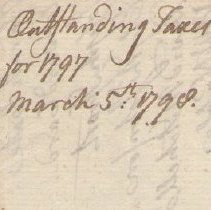 Outstanding Taxes
for 1797
March 5th. 1798.